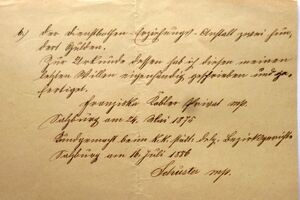 b) der Dienstboten-Erziehungs-Anstalt zwei hun-
dert Gulden.
Zur Urkunde dessen hab ich diesen meinen
letzten Willen eigenhändig geschrieben und ge-
fertiget.
Franziska Kobler Privat mp.
Salzburg am 24. Mai 1875
Kundgemacht beim k.k. städt. delg. Bezirksgerichte
Salzburg am 16 Juli 1886
Schuster mp.